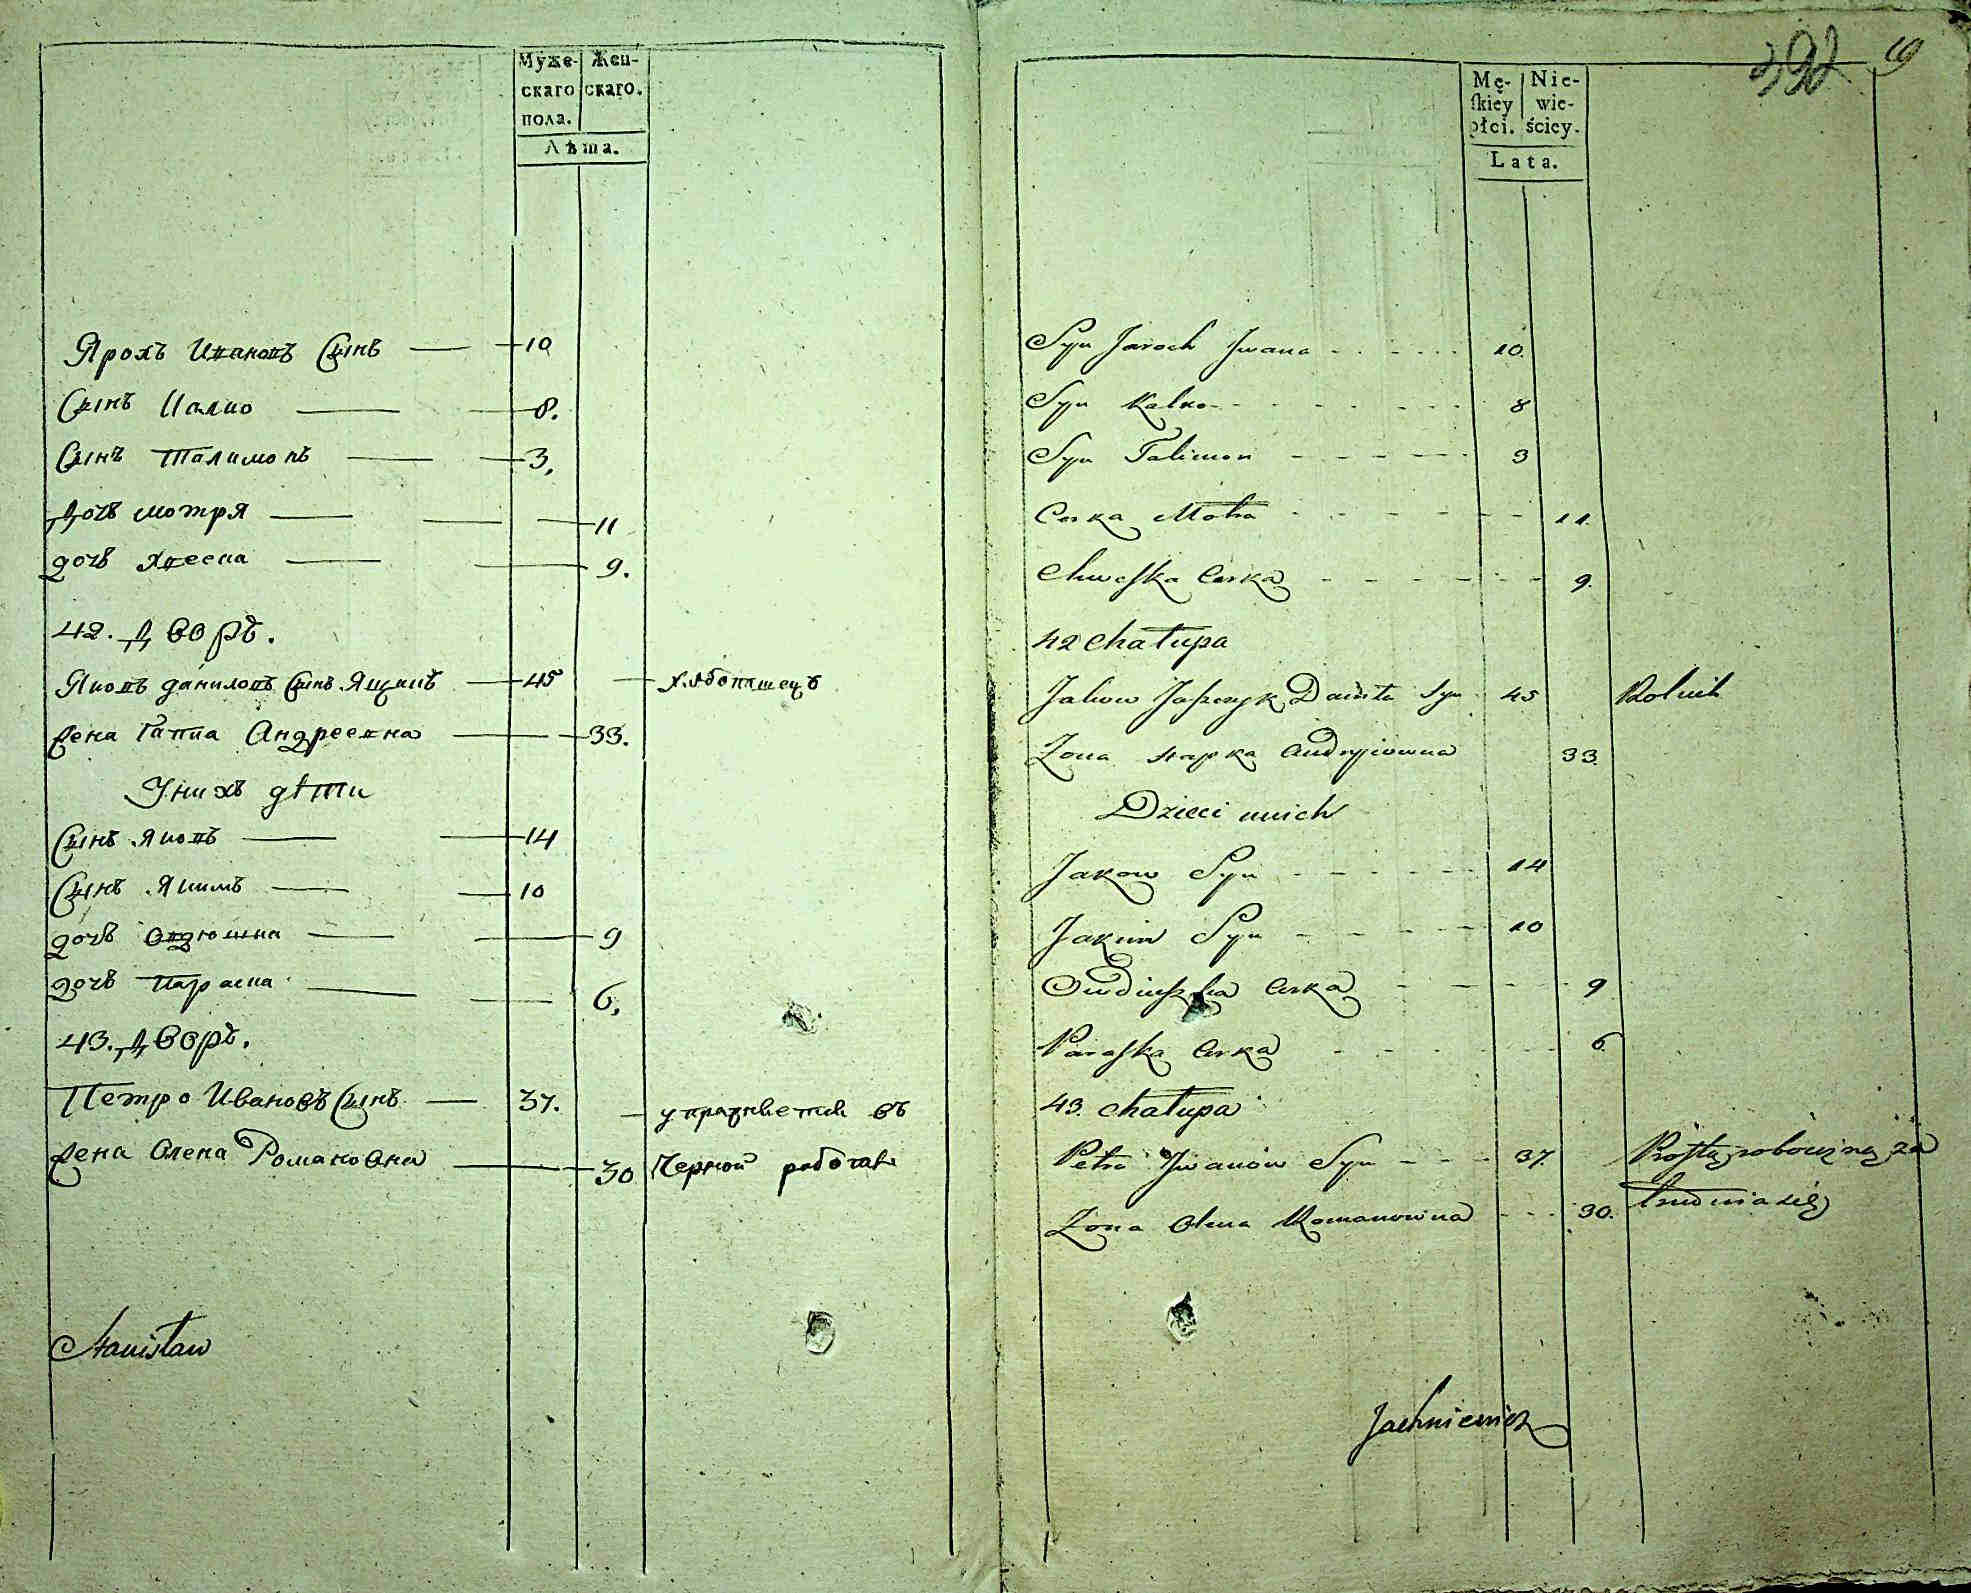 Муже- Жен-
скаго скаго.
пола.
Лѣта.
Ярохъ Ивановъ Сынъ 10
Сынъ Калко 8.
Сынъ Талимонъ 3,
Дочь мотря 11
дочь Хвеска 9.
42. Дворъ.
Яковъ даниловъ Сынъ Ящикъ 45 хлѣбопашецъ
Жена Гапка Андреевна 33.
Унихъ дѣти
Сынъ Яковъ 14
Сынъ Якимъ 10
дочь Овдюшка 9
дочь Параска 6,
43. Дворъ.
Петро Ивановъ Сынъ 37. упражняется въ
Жена Олена Романовна 30 Черной работѣ
Stanisław
392 19
Mę- Nie-
skiey wie-
płci. ściey.
Lata.
Syn Jaroch Jwana 10.
Syn Kalko 8
Syn Talimon 3
Corka Motra 11.
Chweska Corka 9.
42 Chałupa
Jakow Jaszczyk Daniła Syn 45 Rolnik
Zona Hapka Andryiowna 33.
Dzieci unich
Jakow Syn 14
Jakim Syn 10
Owdiuszka Corka 9
Paraska Corka 6.
43. Chałupa
Petro Jwanow Syn 37. Prostą robocizną za
Zona Olena Romanowna 30. trudnia się
Jachniewicz